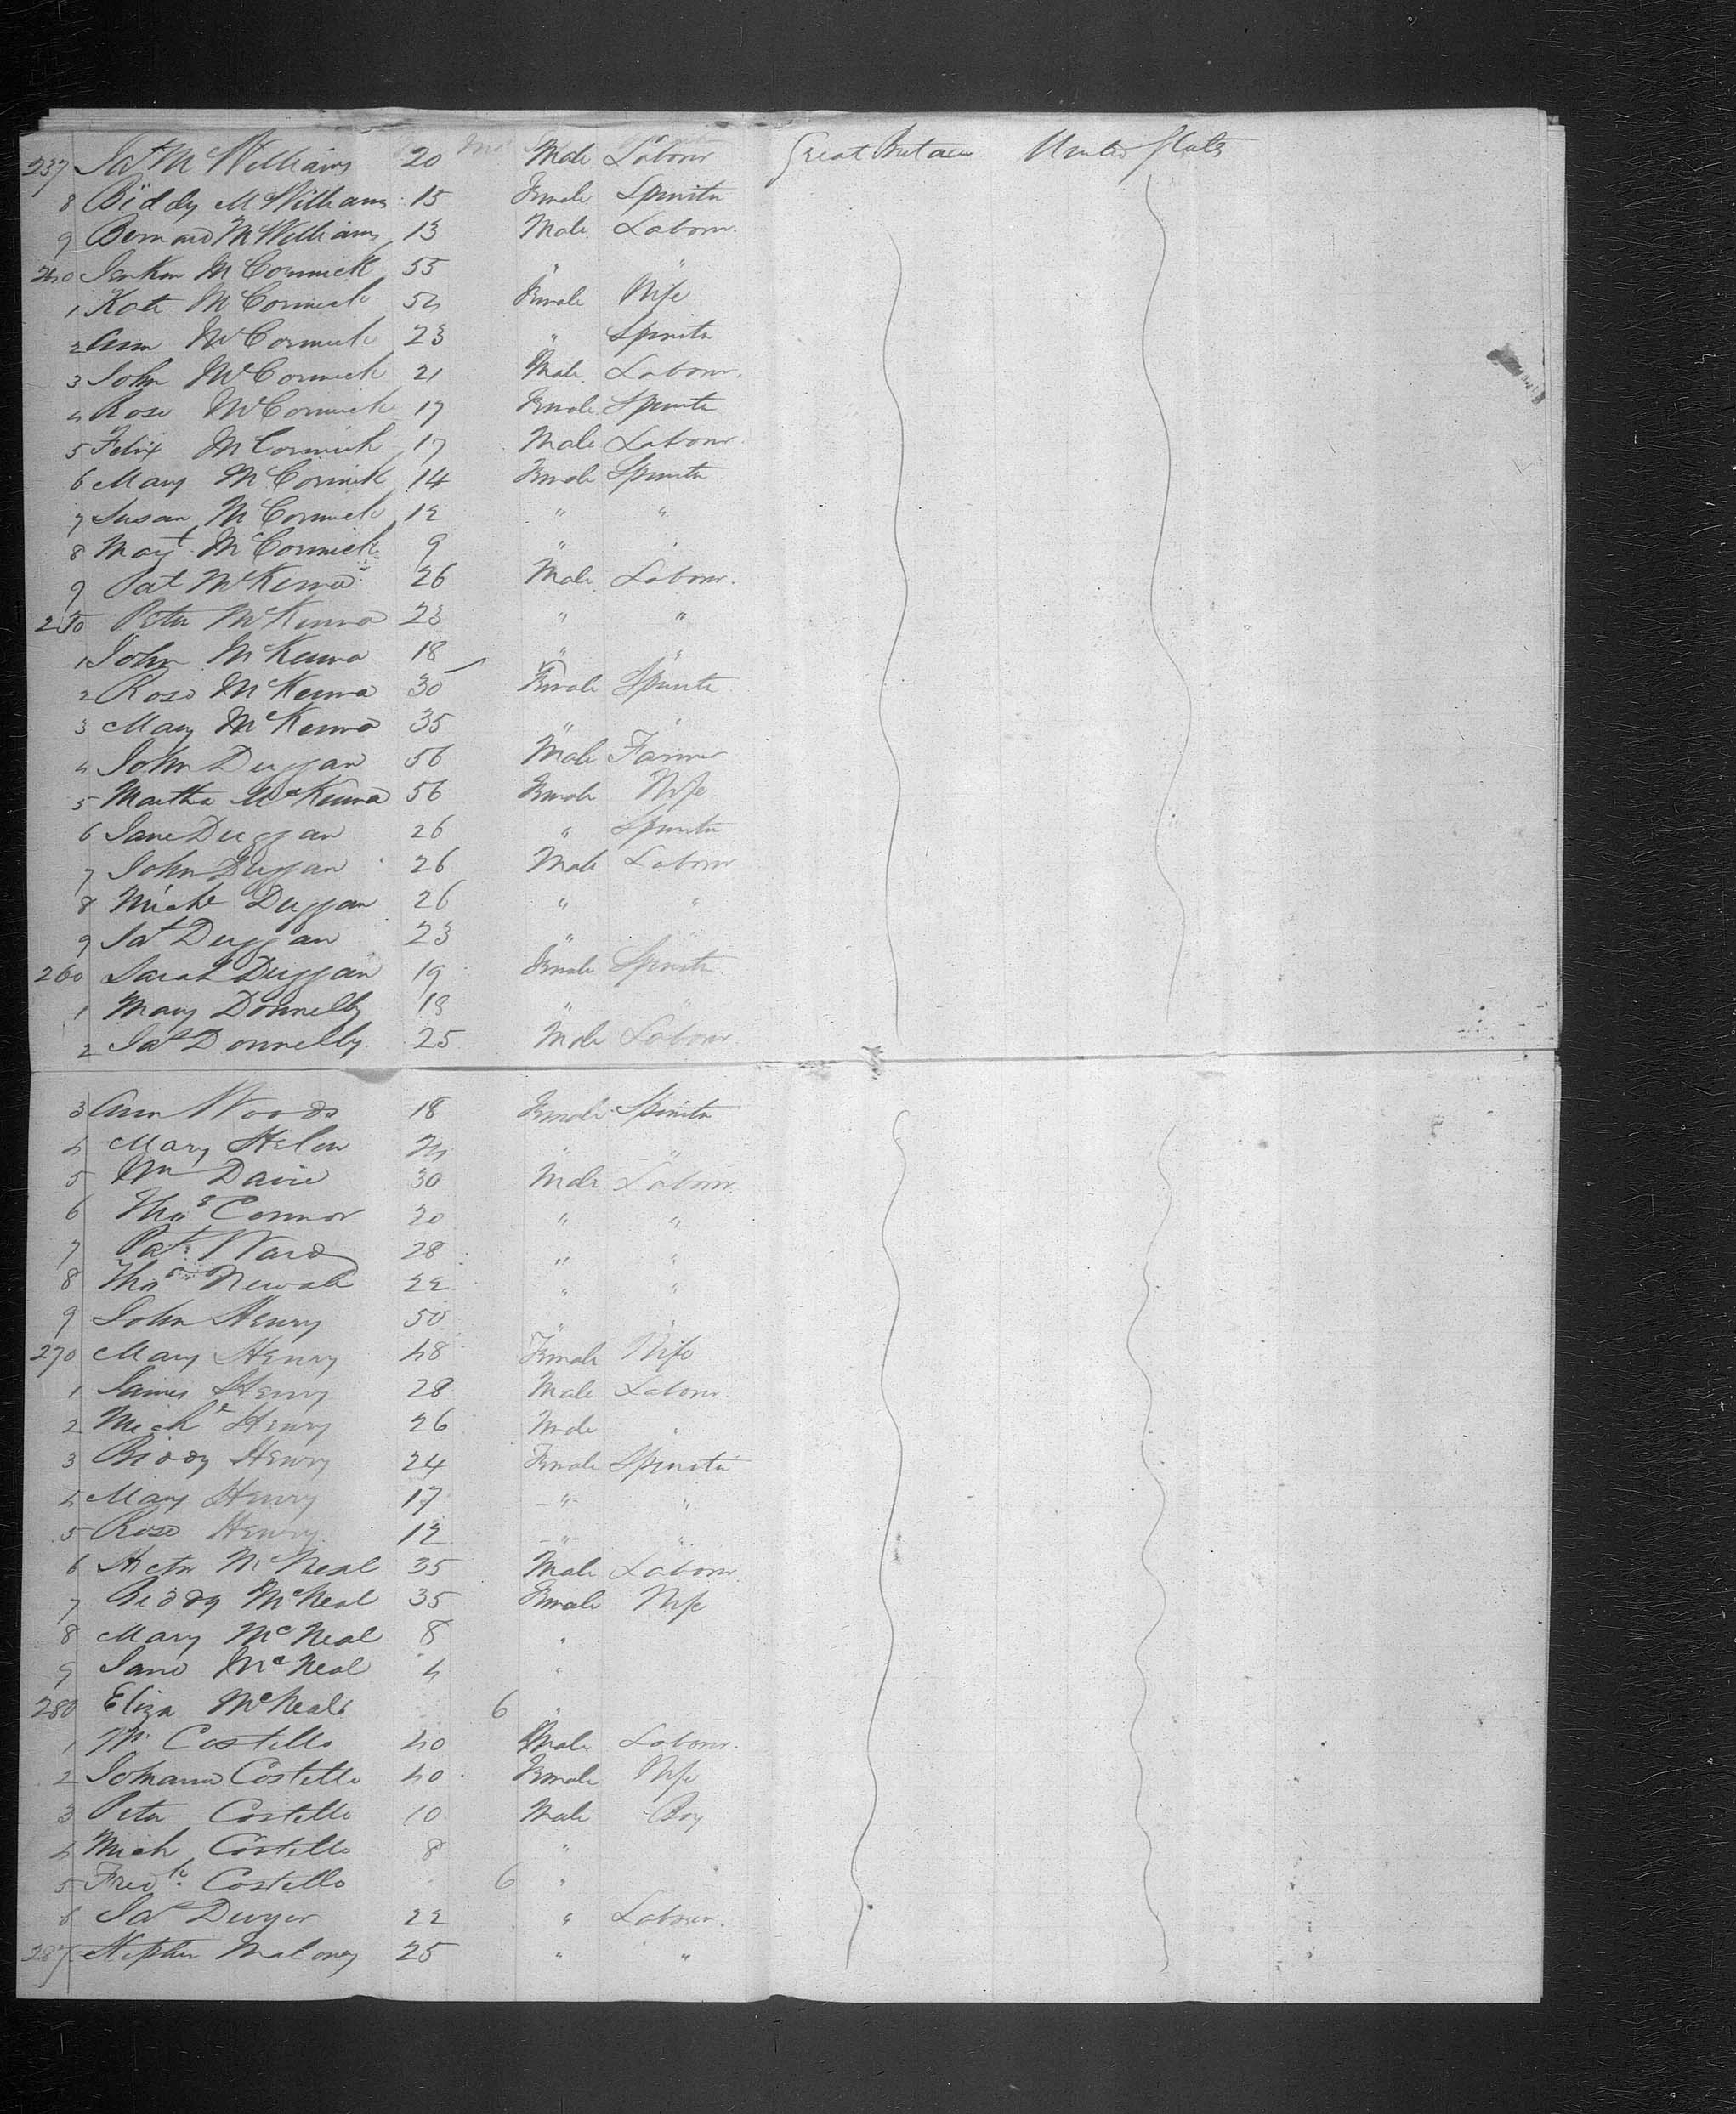 237 Jas McWilliams 20 Male Labour Great Britain United States
8 Biddy McWilliams 15 Female Spinstr
9 Bernard McWilliams 13 Male Labour.
240 McCormick 55 " "
1 Kate McCormick 54 Female Wife
2 Ann McCormick 23 " Spinstr
3 John McCormick 21 Male Labour.
4 Rose McCormick 17 Female Spinstr
5 Felix McCormick 17 Male Labour.
6 Mary McCormick 14 Female Spinstr
7 Susan McCormick 12 " "
8 Magt McCormick 9 "
9 Pat McKenna 26 Male Labour.
250 Peter McKenna 23 " "
1 John McKenna 18 " "
2 Rose McKenna 30 Female Spinstr
3 Mary McKenna 35 " "
4 John Duggan 56 Male Farmer
5 Martha McKenna 56 Female Wife
6 Jane Duggan 26 " Spinstr
7 John Duggan 26 Male Labour
8 Michl Duggan 26 " "
9 Jas Duggan 23 " "
260 Sarah Duggan 19 Female Spinstr
1 Mary Donnelly 18 " "
2 Jas Donnelly 25 Male Labour
3 Ann Woods 18 Female Spinstr
4 Mary " "
5 Wm Davie 30 Male Labour.
6 Thos Connor 20 " "
7 Pat Ward 28 " "
8 Thos 22 " "
9 John Henry 50 " "
270 Mary Henry 48 Female Wife
1 James Henry 28 Male Labour
2 Michl Henry 26 Male "
3 Biddy Henry 24 Female Spinstr
4 Mary Henry 17 " "
5 Rose Henry 12 " "
6 McNeal 35 Male Labour
7 Biddy McNeal 35 Female Wife
8 Mary McNeal 8 "
9 Jane McNeal 4 "
280 Eliza McNeal 6 "
1 Costello 40 Male Labour.
2 Johanna Costello 40 Female Wife
3 Peter Costello 10 Male Boy
4 Mich Costello 8 "
5 Fredk. Costello 6 "
6 Jas Dwyer 22 " Labour.
287 Stephen Maloney 25 " "